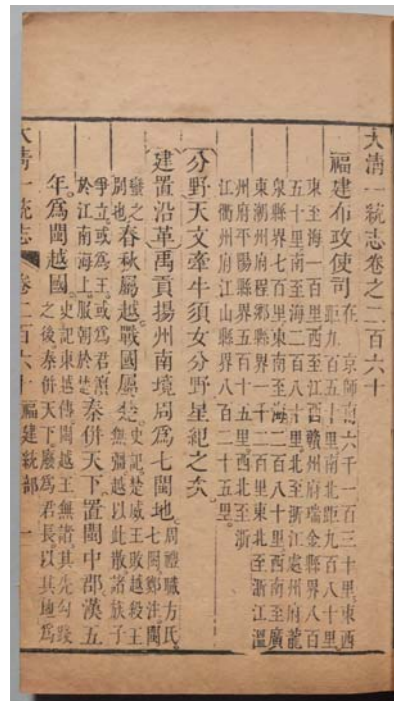 大清一統志卷之二百六十
福建布政使司在 京師南六千一百三十里。東西
距九百五十里南北距九百八十里。
東至海一百里西至江西贛州府瑞金縣界八百
五十里南至海二百八十里。北至浙江處州府龍
泉縣界七百八十里。東南至海二百八十里。西南至廣
東潮州府程鄉縣界一千二百里東北至浙江溫
州府平陽縣界五百十五里。西北至浙
江衢州府江山縣界八百二十五里。
分野天文牽牛須女分野星紀之次。
建置沿革禹貢揚州南境周爲七閩地。周禮職方氏。
七閩鄭注。閩
蠻之
別也。春秋屬越戰國屬楚。史記。楚威王敗越殺王
無彊越以此散諸族子
爭立或爲王。或爲君濵
於江南海上。服朝於楚。秦併天下。置閩中郡漢五
年。爲閩越國。史記東越傳。閩越王無諸。其先勾踐
之後。秦併天下。廢爲君長。以其地爲
大清一統志 卷二百六十 福建統部 一